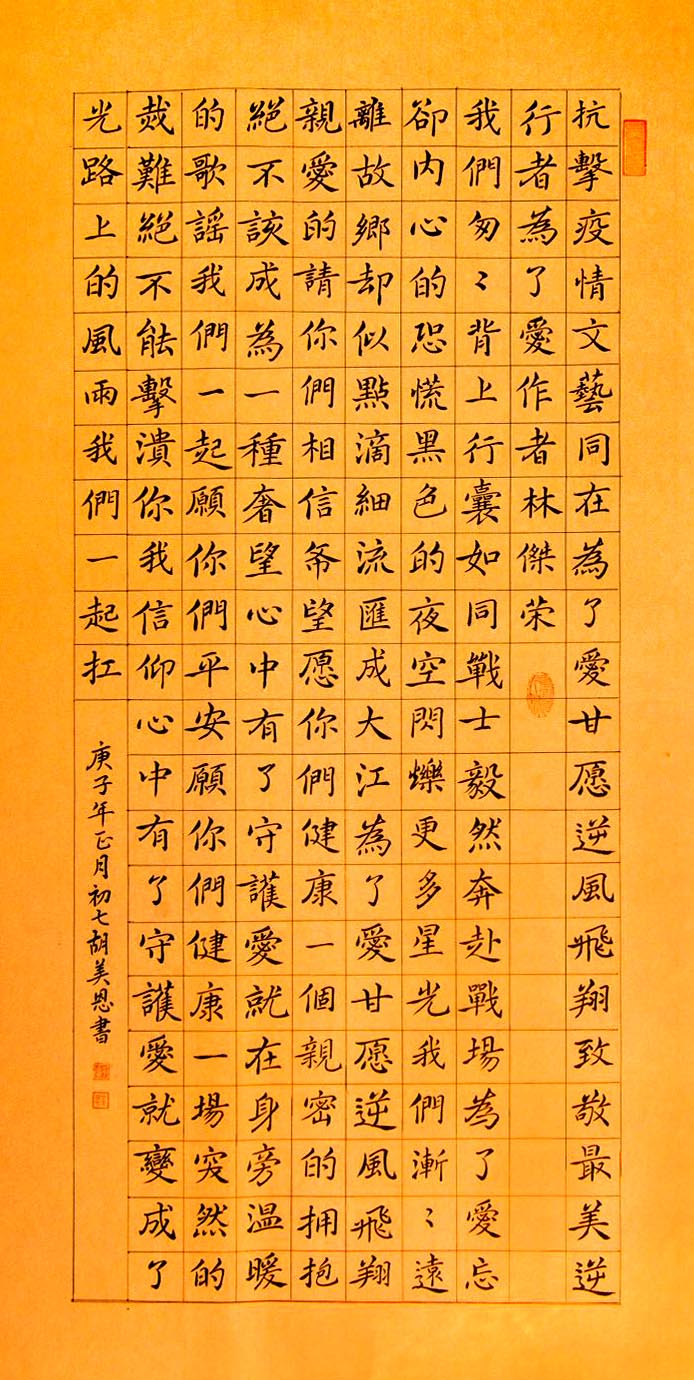 抗擊疫情文藝同在為了愛甘愿逆風飛翔致敬最美逆
行者為了愛作者林傑荣
我們匆〻背上行囊如同戰士毅然奔赴戰場為了愛忘
卻内心的恐慌黑色的夜空閃爍更多星光我們漸〻遠
離故鄉却似點滴細流匯成大江為了愛甘愿逆風飛翔
親愛的請你們相信希望愿你們健康一個親密的拥抱
絕不該成為一種奢望心中有了守護愛就在身旁温暖
的歌謡我們一起願你們平安願你們健康一場突然的
烖難絕不能擊潰你我信仰心中有了守護愛就變成了
光路上的風雨我們一起扛
庚子年正月初七胡美恩書